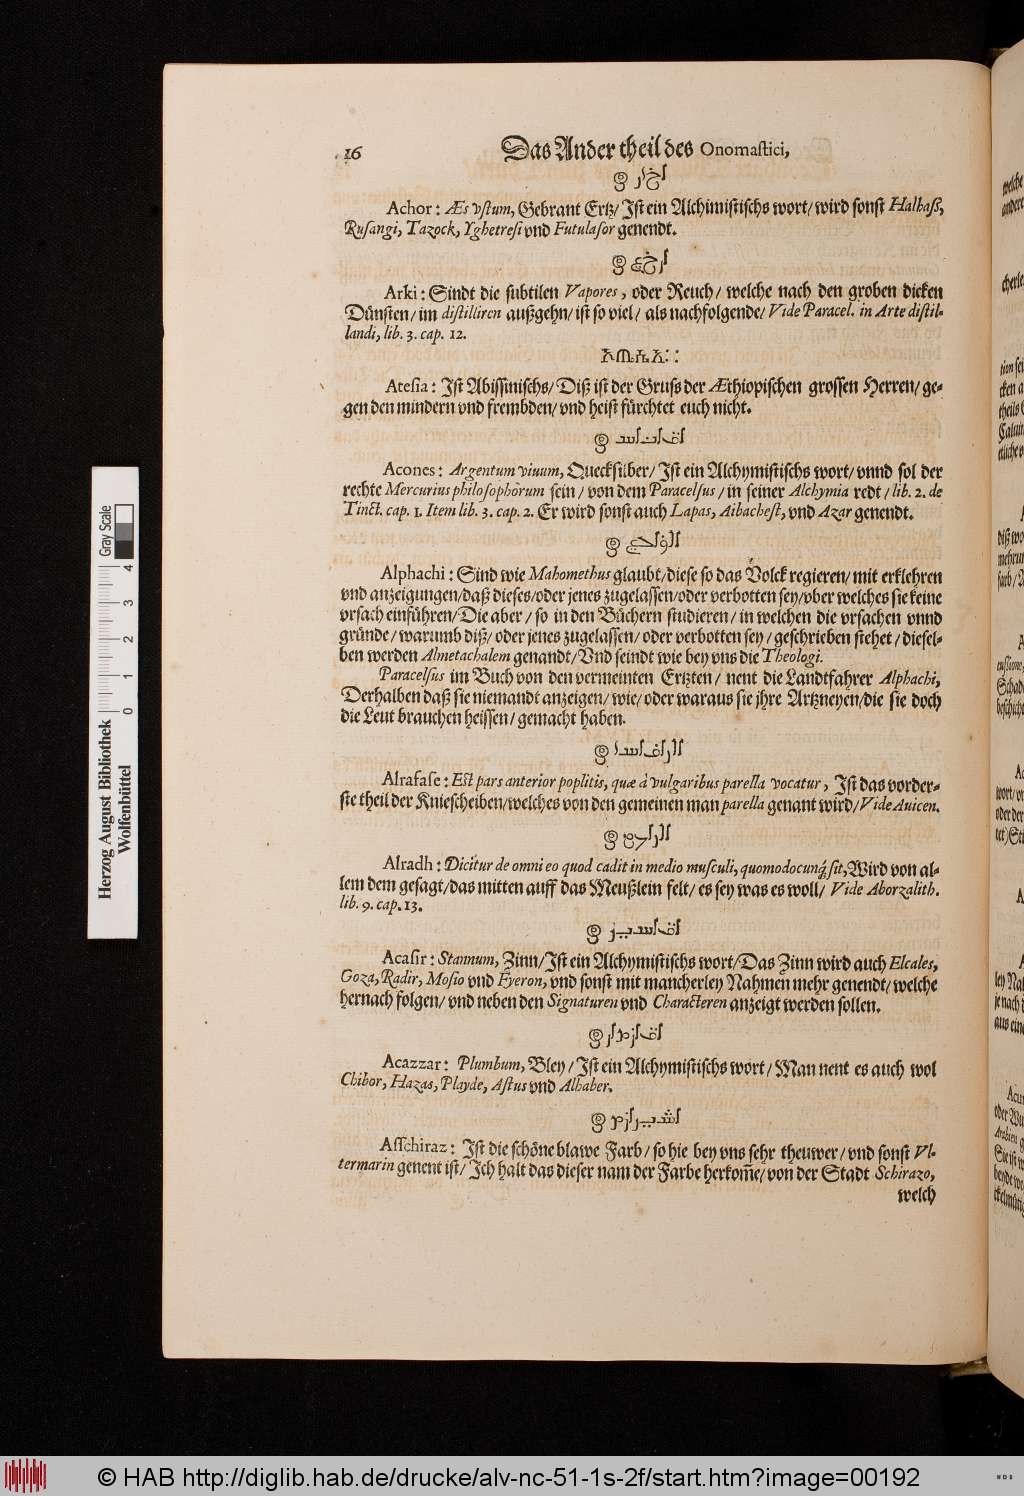 16 Das Ander theil des Onomastici,
Achor: Æs vstum, Gebrant Ertz/ Ist ein Alchimistischs wort/ wird sonst Halhass,
Rusangi, Tazock, Yghetresi vnd Futulasor genendt.
Arki: Sindt die subtilen Vapores, oder Reuch/ welche nach den groben dicken
Dünsten/ im distilliren außgehn/ ist so viel/ als nachfolgende/ Vide Paracel. in Arte distil-
landi, lib. 3. cap. 12.
Atesia: Ist Abissinischs/ Diß ist der Gruss der Æthiopischen grossen Herren/ ge-
gen den mindern vnd frembden/ vnd heist fürchtet euch nicht.
Acones: Argentum viuum, Quecksilber/ Ist ein Alchymistischs wort/ vnnd sol der
rechte Mercurius philosophòrum sein/ von dem Paracelsus/ in seiner Alchymia redt/ lib. 2. de
Tinct. cap. 1. Item lib. 3. cap. 2. Er wird sonst auch Lapas, Aibachest, vnd Azar genendt.
Alphachi: Sind wie Mahomethus glaubt/ diese so das Volck regieren/ mit erklehren
vnd anzeigungen/ daß dieses/ oder jenes zugelassen/ oder verbotten sey/ ober welches sie keine
vrsach einführen/ Die aber/ so in den Büchern studieren/ in welchen die vrsachen vnnd
gründe/ warumb diß/ oder jenes zugelassen/ oder verbotten sey/ geschrieben stehet/ diesel-
ben werden Almetachalem genandt/ Vnd seindt wie bey vns die Theologi.
Paracelsus im Buch von den vermeinten Ertzten/ nent die Landtfahrer Alphachi,
Derhalben daß sie niemandt anzeigen/ wie/ oder waraus sie jhre Artzneyen/ die sie doch
die Leut brauchen heissen/ gemacht haben.
Alrafase: Est pars anterior poplitis, quæ à vulgaribus parella vocatur, Ist das vorder-
ste theil der Kniescheiben/ welches von den gemeinen man parella genant wird/ Vide Auicen.
Alradh: Dicitur de omni eo quod cadit in medio musculi, quomodocunq́ sit, Wird von al-
lem dem gesagt/ das mitten auff das Meußlein felt/ es sey was es woll/ Vide Aborzalith.
lib. 9. cap. 13.
Acasir: Stannum, Zinn/ Ist ein Alchymistischs wort/ Das Zinn wird auch Elcales,
Goza, Radir, Mosio vnd Eyeron, vnd sonst mit mancherley Nahmen mehr genendt/ welche
hernach folgen/ vnd neben den Signaturen vnd Characteren anzeigt werden sollen.
Acazzar: Plumbum, Bley/ Ist ein Alchymistischs wort/ Man nent es auch wol
Chibor, Hazas, Playde, Astus vnd Alhaber.
Asschiraz: Ist die schöne blawe Farb/ so hie bey vns sehr theuwer/ vnd sonst Vl-
termarin genent ist/ Ich halt das dieser nam der Farbe herkom̃e/ von der Stadt Schirazo,
welch
Herzog August Bibliothek
Wolfenbüttel
Gray Scale
0 1 2 3 4
© HAB http://diglib.hab.de/drucke/alv-nc-51-1s-2f/start.htm?image=00192